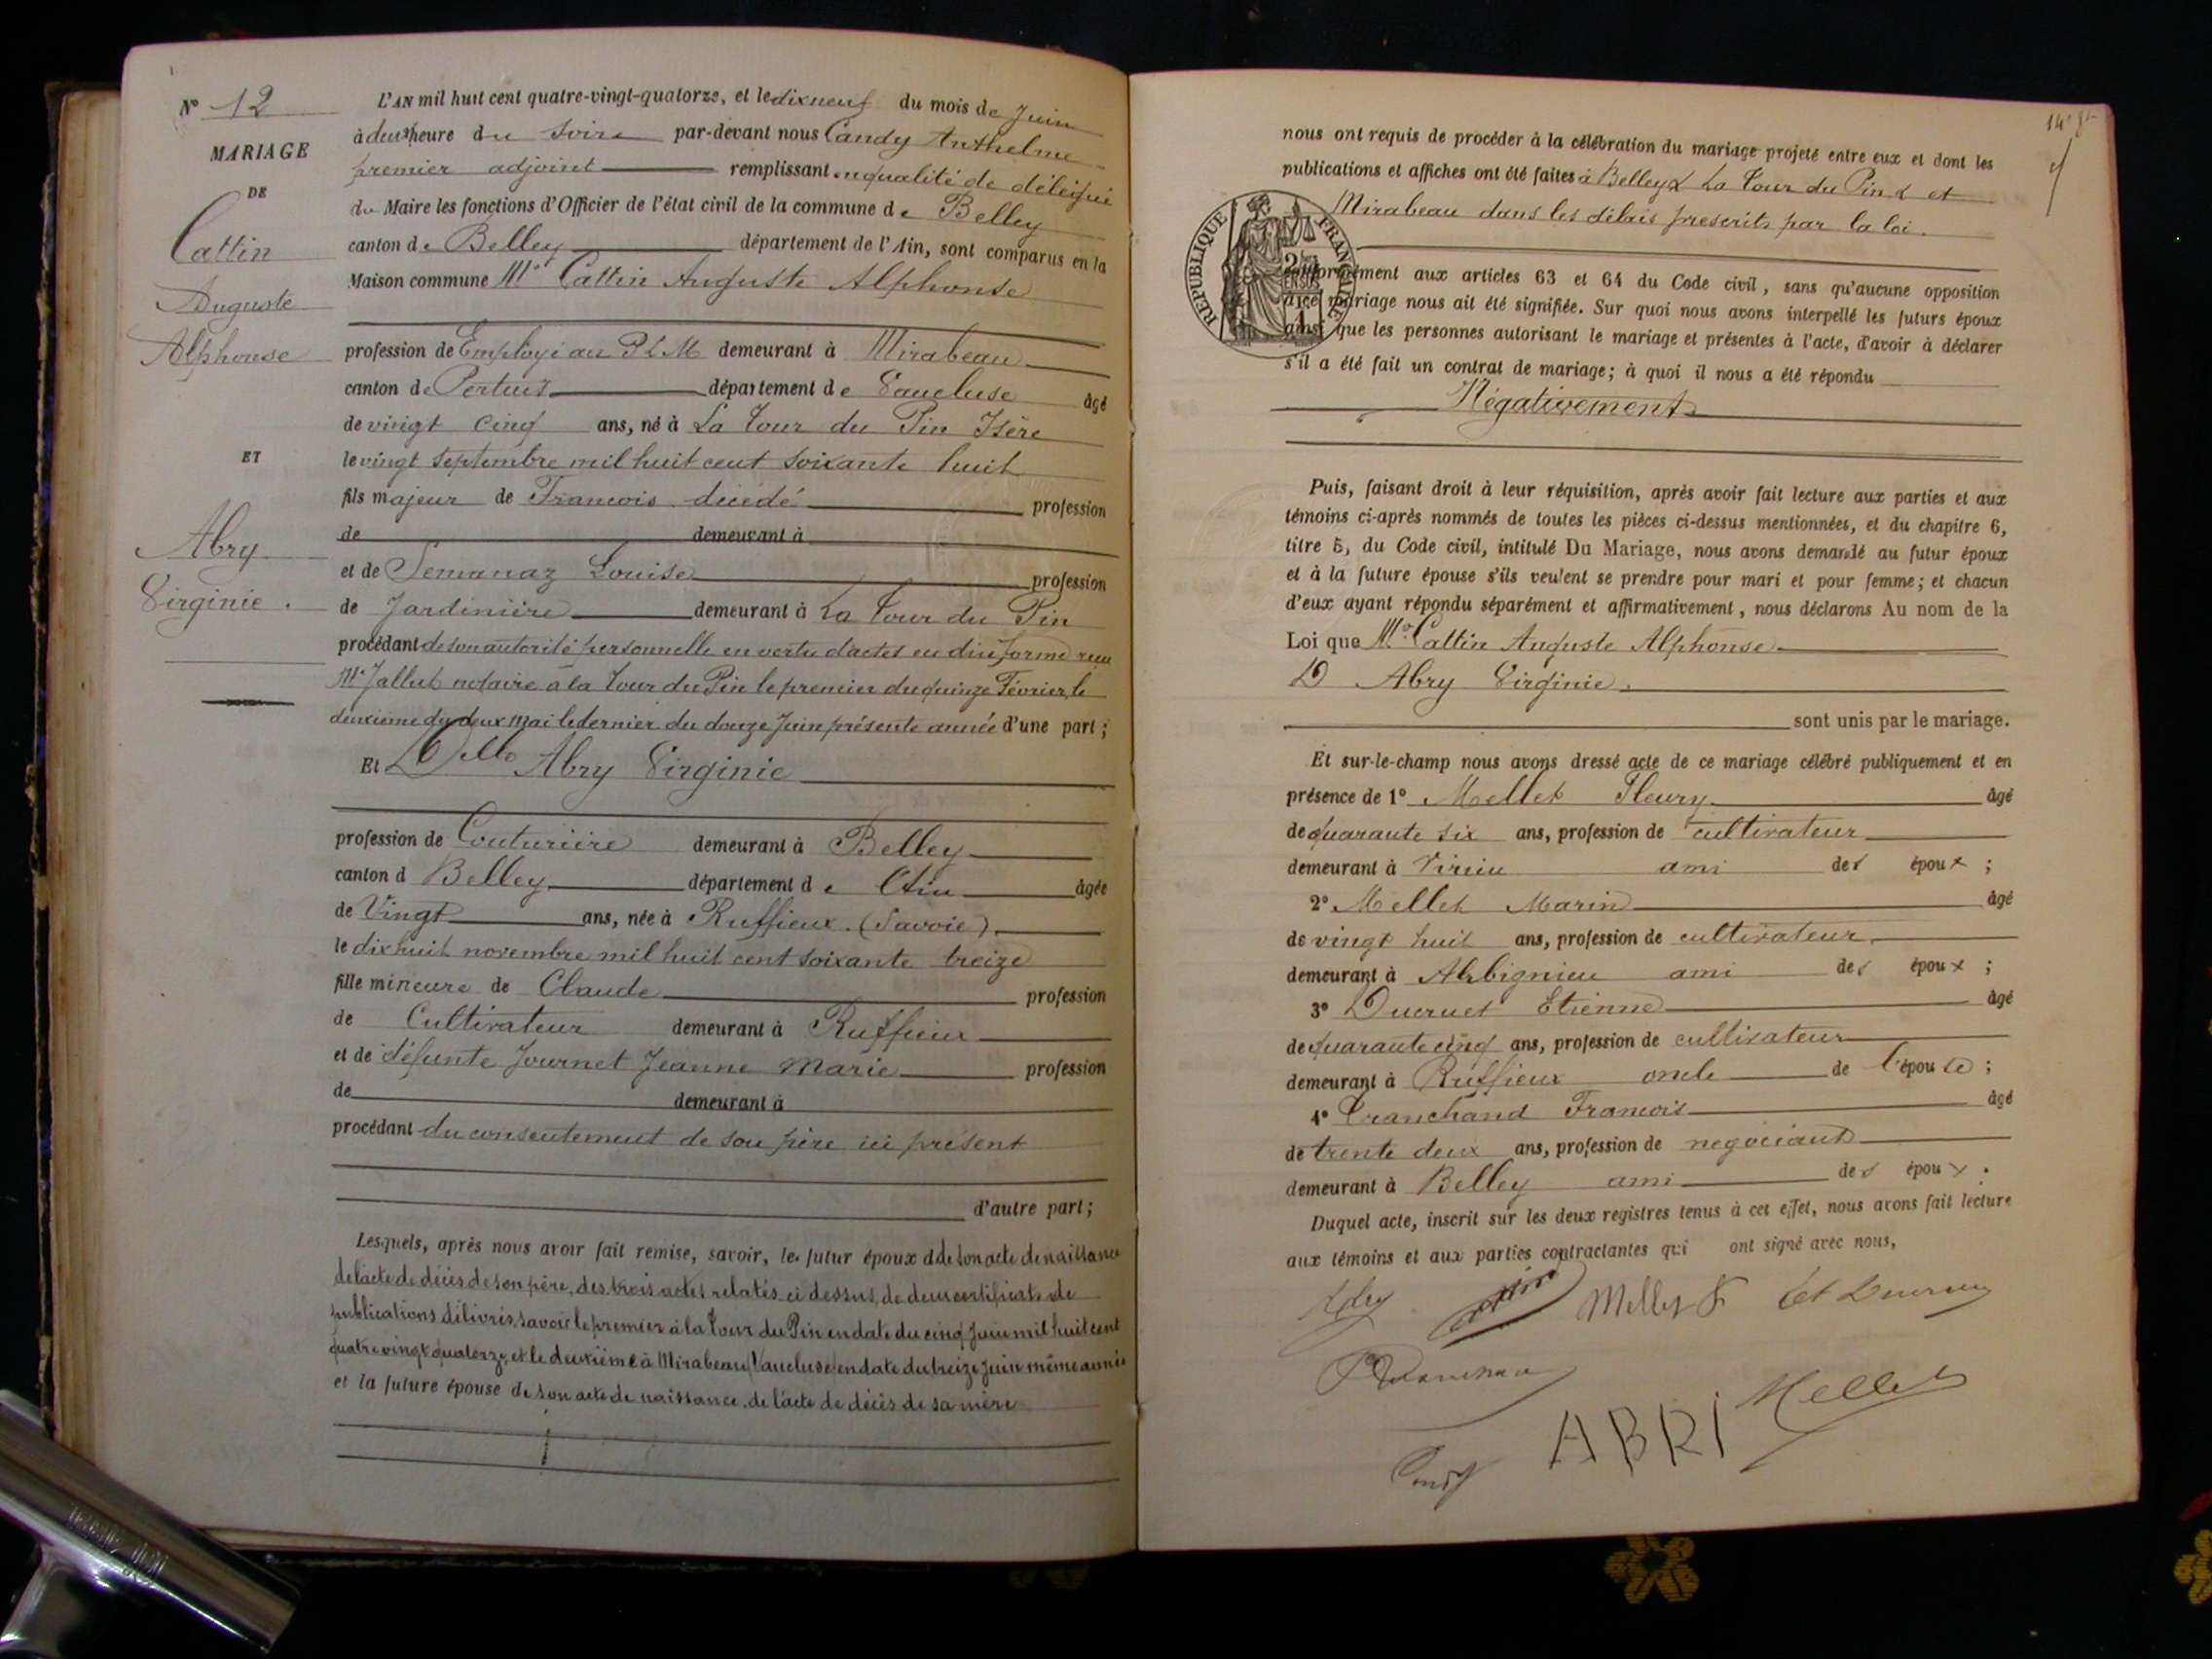 N° 12
MARIAGE
DE
Cattin
Auguste
Alphonse
ET
Abry
Virginie.
L'AN mil huit cent quatre-vingt-quatorze, et le dix neuf du mois de Juin
à deux heure du soir par-devant nous Candy Anthelme
premier adjoint remplissant en qualité de délégué
du Maire les fonctions d'Officier de l'état civil de la commune de Belley
canton de Belley département de l'Ain, sont comparus en la
Maison commune Mr Cattin Auguste Alphonse
profession de Employé au P L M demeurant à Mirabeau
canton de Pertuis département de Vaucluse âgé
de vingt cinq ans, né à La Tour du Pin Isère
le vingt septembre mil huit cent soixante huit
fils majeur de Francois décédé profession
de demeurant à
et de Semanaz Louise profession
de Jardinière demeurant à La Tour du Pin
procédant de son autorité personnelle en vertu d'actes en due forme reçu
Me Jallut notaire à la Tour du Pin le premier du quinze Février, le
deuxième du deux Mai le dernier du douze Juin présente année d'une part;
Et Delle Abry Virginie
profession de Couturière demeurant à Belley
canton d Belley département de Ain âgée
de Vingt ans, née à Ruffieux (Savoie)
le dix huit novembre mil huit cent soixante treize
fille mineure de Claude profession
de Cultivateur demeurant à Ruffieux
et de défunte Journet Jeanne Marie profession
de demeurant à
procédant du consentement de son père ici présent
d'autre part;
Lesquels, après nous avoir fait remise, savoir, le futur époux de son acte de naissance
de l'acte de décès de son père, des trois actes relatés ci dessus, de deux certificats de
publications délivrés, savoir le premier à la Tour du Pin en date du cinq Juin mil huit cent
quatre vingt quatorze, et le deuxième à Mirabeau (Vaucluse) en date du treize Juin même année
et la future épouse de son acte de naissance, de l'acte de décès de sa mère
nous ont requis de procéder à la célébration du mariage projeté entre eux et dont les
publications et affiches ont été faites à Belley à La Tour du Pin et
Mirabeau dans les délais prescrits par la loi.
REPUBLIQUE FRANCAISE
conformément aux articles 63 et 64 du Code civil, sans qu'aucune opposition
à ce mariage nous ait été signifiée. Sur quoi nous avons interpellé les futurs époux
ainsi que les personnes autorisant le mariage et présentes à l'acte, d'avoir à déclarer
s'il a été fait un contrat de mariage; à quoi il nous a été répondu
Négativement
Puis, faisant droit à leur réquisition, après avoir fait lecture aux parties et aux
témoins ci-après nommés de toutes les pièces ci-dessus mentionnées, et du chapitre 6,
titre 5, du Code civil, intitulé Du Mariage, nous avons demandé au futur époux
et à la future épouse s'ils veulent se prendre pour mari et pour femme; et chacun
d'eux ayant répondu séparément et affirmativement, nous déclarons Au nom de la
Loi que Mr Cattin Auguste Alphonse
D Abry Virginie.
sont unis par le mariage.
Et sur-le-champ nous avons dressé acte de ce mariage célébré publiquement et en
présence de 1° Mellet Fleury âgé
de quarante six ans, profession de cultivateur
demeurant à Virieu ami des époux;
2° Mellet Marin âgé
de vingt huit ans, profession de cultivateur
demeurant à Arbignieu ami des époux;
3° Ducruet Etienne âgé
de quarante cinq ans, profession de cultivateur
demeurant à Ruffieux oncle de l'épouse;
4° Tranchand Francois âgé
de trente deux ans, profession de négociant
demeurant à Belley ami des époux.
Duquel acte, inscrit sur les deux registres tenus à cet effet, nous avons fait lecture
aux témoins et aux parties contractantes qui ont signé avec nous,
Abry Mellet F
ABRI Mellet
Candy